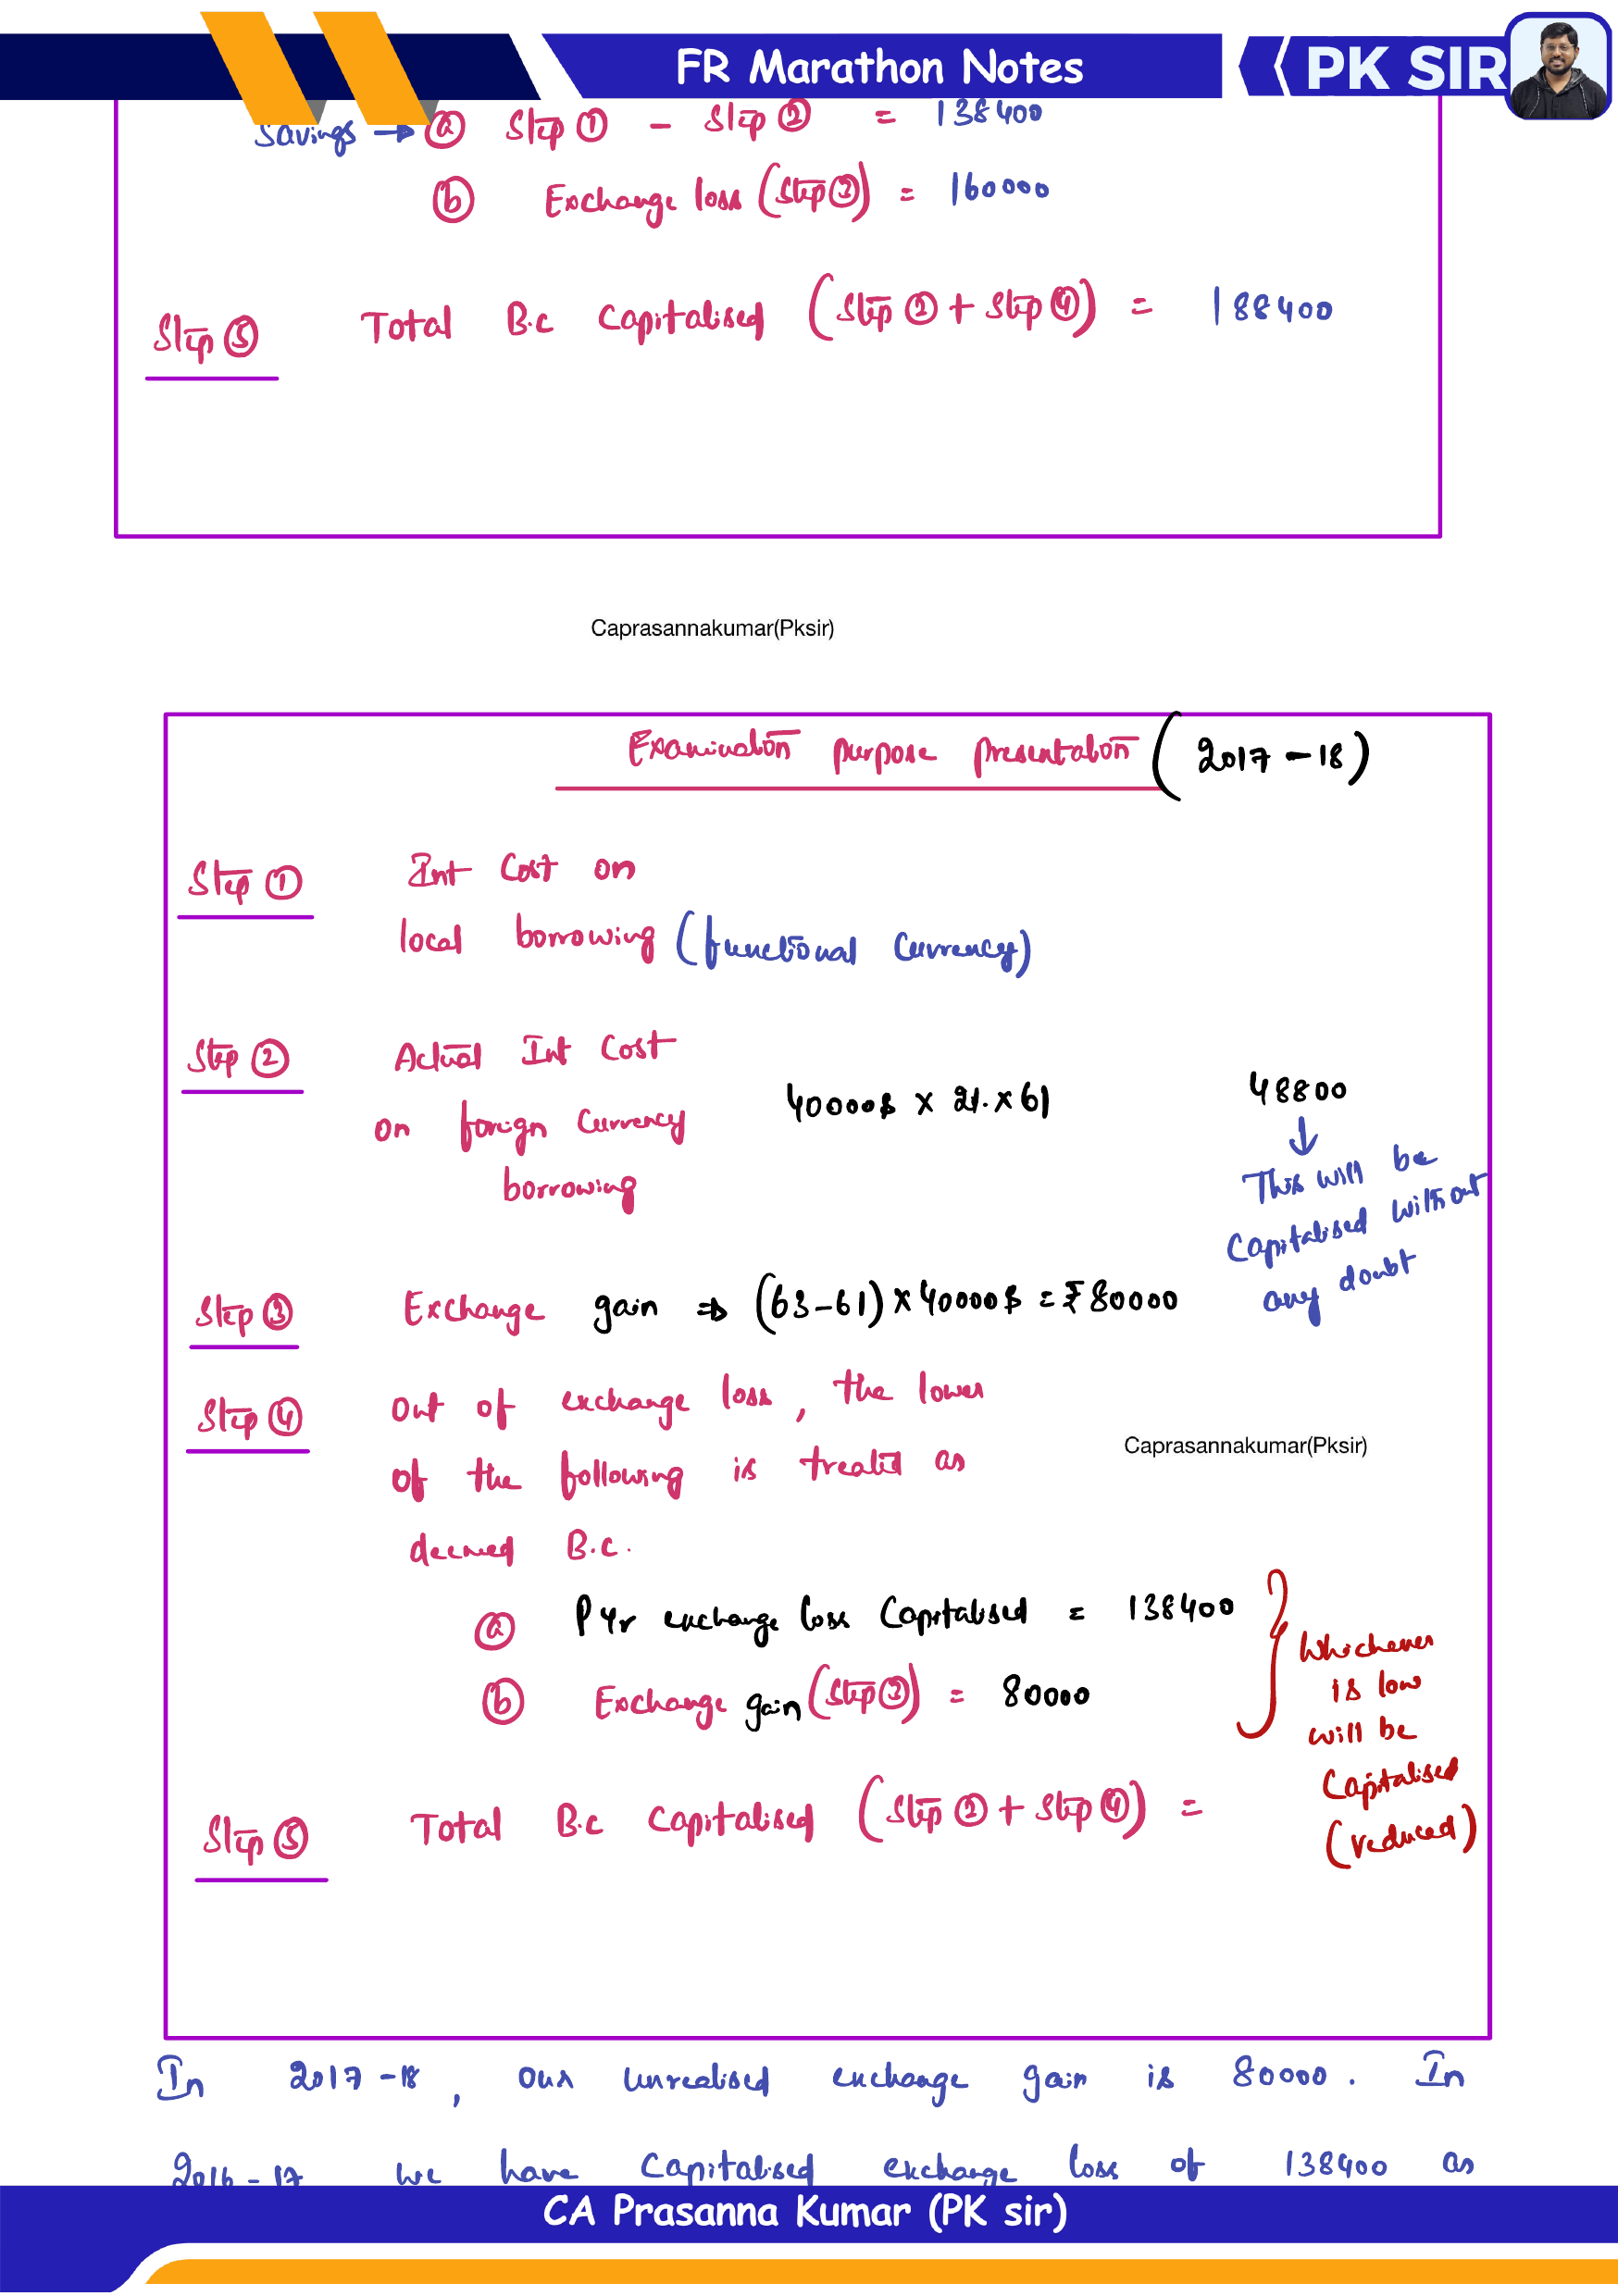 FR Marathon Notes
PK SIR
Savings → (a) Step ① - Step ② = 138400
(b) Exchange loss (Step③) = 160000
Step ⑤ Total B.C Capitalised (Step ② + Step ④) = 188400
Caprasannakumar(Pksir)
Examination purpose presentation (2017-18)
Step ① Int Cost on
local borrowing (functional Currency)
Step ② Actual Int Cost
on foreign Currency 40000$ x 2%. x 61 48800
borrowing
↓
This will be
Capitalised without
any doubt
Step ③ Exchange gain ⇒ (63-61) x 40000$ = ₹80000
Step ④ Out of exchange loss, the lower
of the following is treated as
deemed B.C.
Caprasannakumar(Pksir)
(a) PYr exchange loss Capitalised = 138400
(b) Exchange gain (Step③) = 80000
Whichever
is low
will be
Capitalised
(reduced)
Step ⑤ Total B.C Capitalised (Step ② + Step ④) =
In 2017-18, our unrealised exchange gain is 80000. In
2016-17 we have Capitalised exchange loss of 138400 as
CA Prasanna Kumar (PK sir)